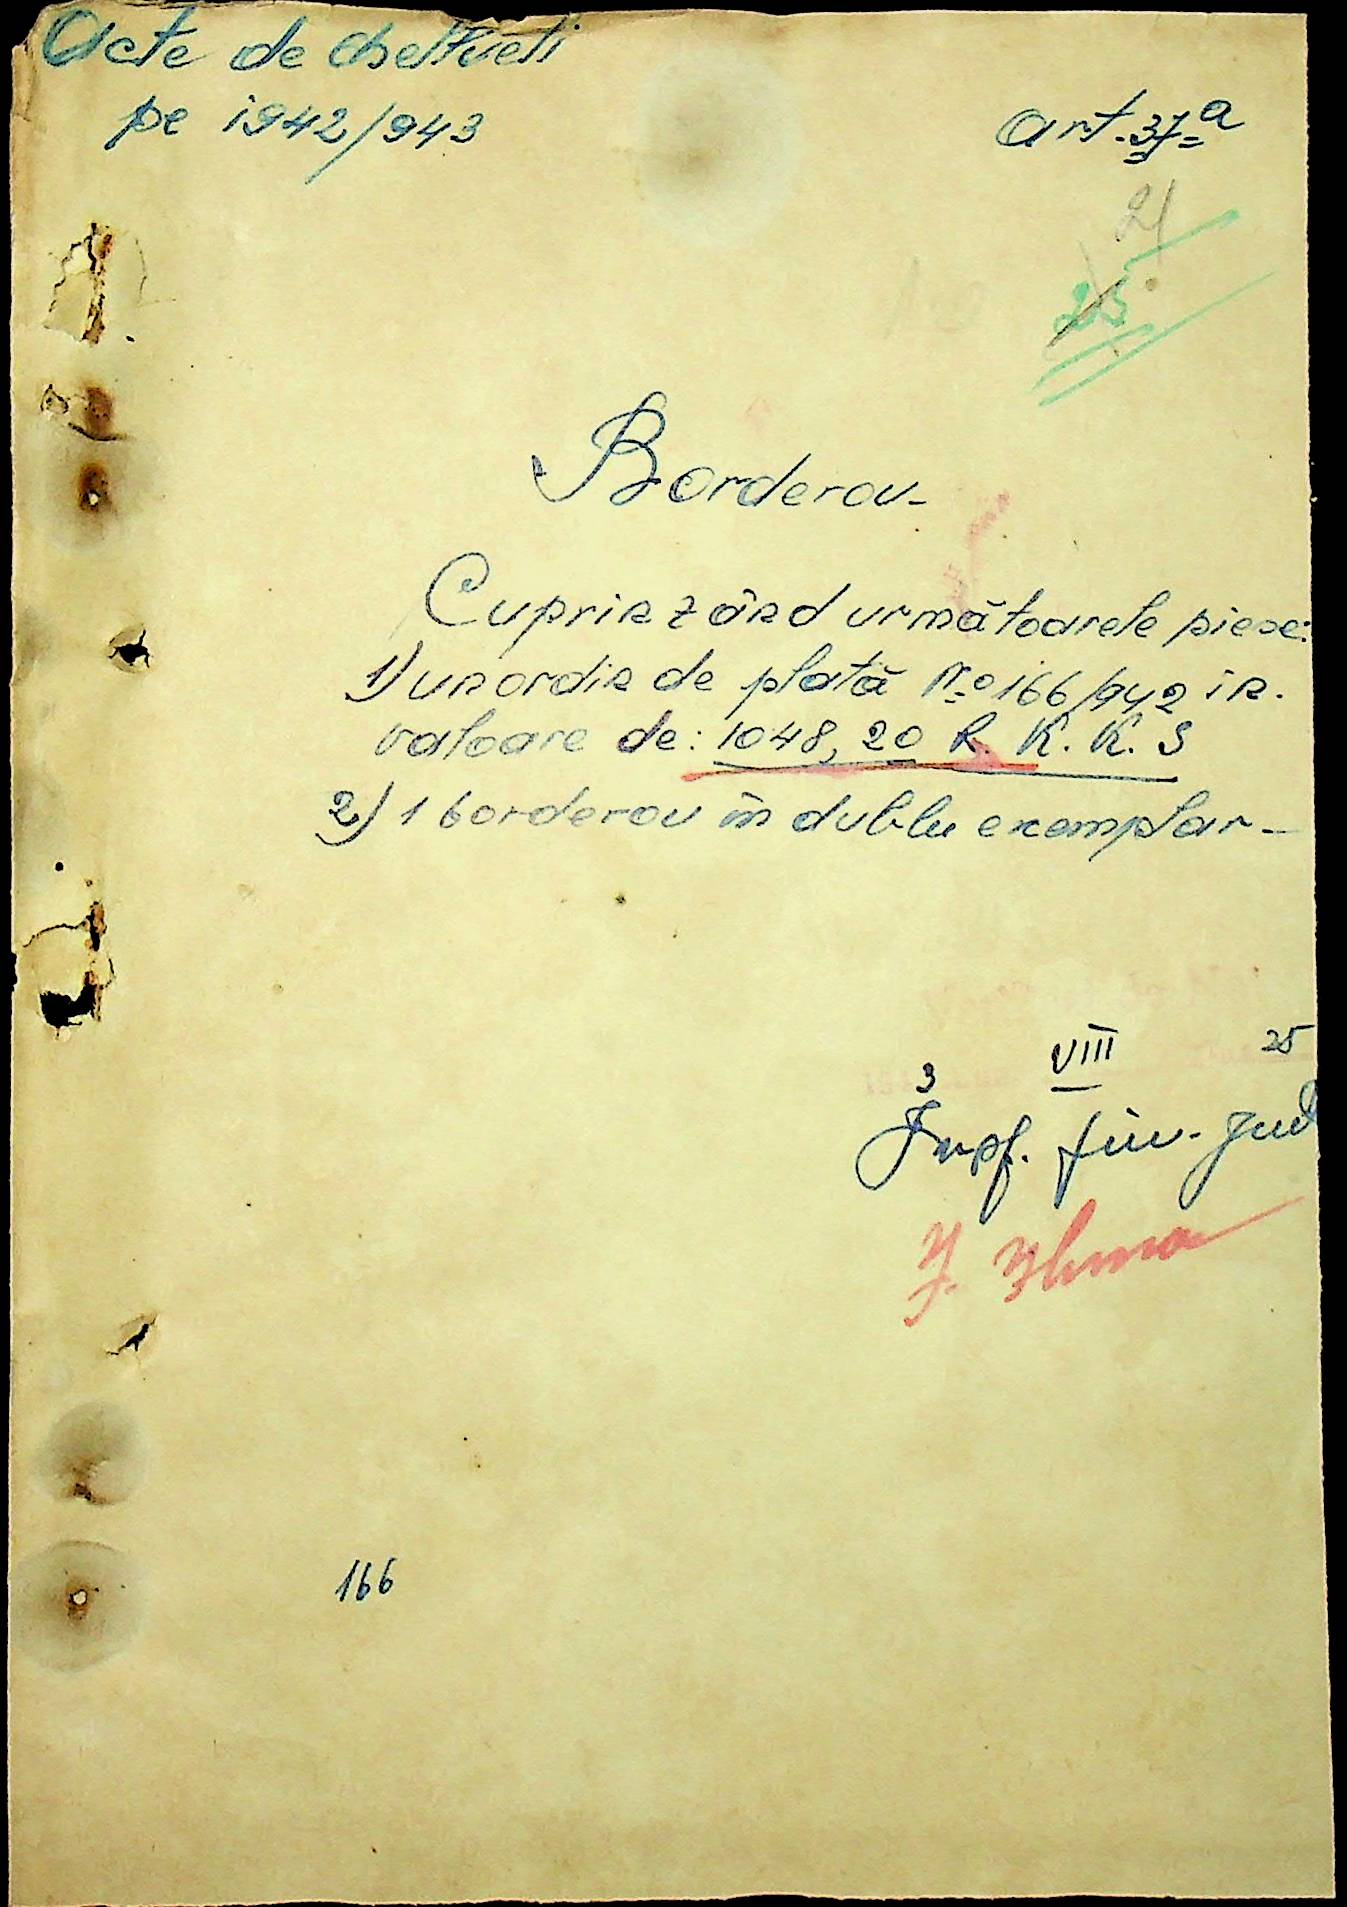 Acte de cheltueli
pe 1942/943
art. 37 a
21
25
Borderou-
Cuprinzând următoarele piese:
1) un ordin de plată No 166/942 în.
valoare de: 1048,20 R. K. K. S
2) 1 borderou în dublu exemplar-
3 VIII 25
fin. Jud
166